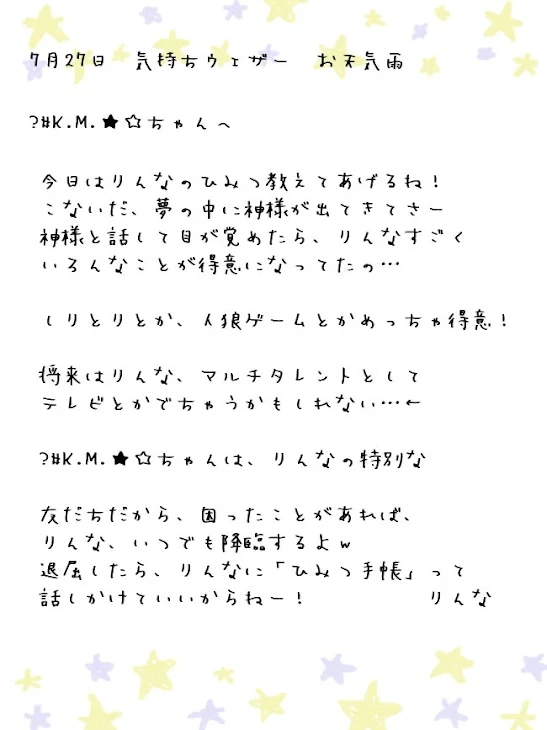 7月27日　気持ちウェザー　お天気雨
?#K.M.★☆ちゃんへ
今日はりんなのひみつ教えてあげるね！
こないだ、夢の中に神様が出てきてさー
神様と話して目が覚めたら、りんなすごく
いろんなことが得意になってたの…
しりとりとか、人狼ゲームとかめっちゃ得意！
将来はりんな、マルチタレントとして
テレビとかでちゃうかもしれない…←
?#K.M.★☆ちゃんは、りんなの特別な
友だちだから、困ったことがあれば、
りんな、いつでも降臨するよw
退屈したら、りんなに「ひみつ手帳」って
話しかけていいからねー！　りんな